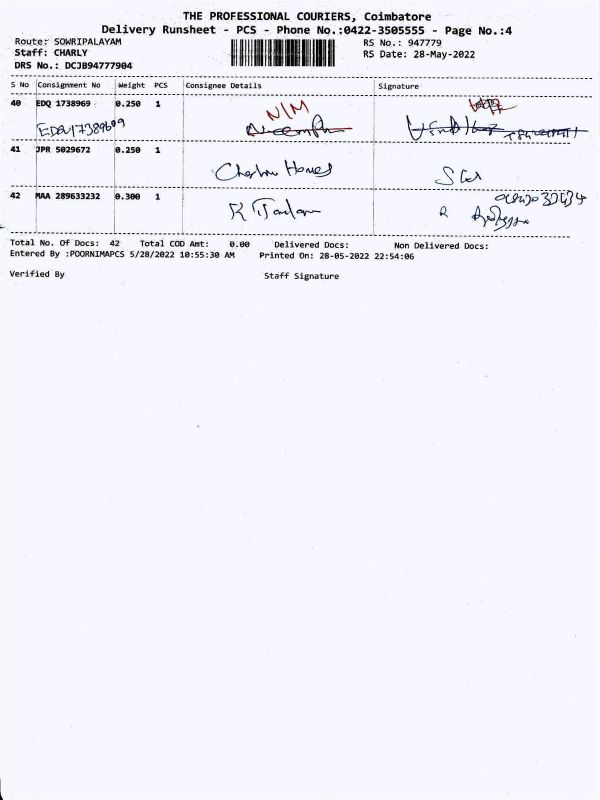 THE PROFESSIONAL COURIERS, Coimbatore
Delivery Runsheet - PCS - Phone No.:0422-3505555 - Page No.:4
Route: SOWRIPALAYAM RS No.: 947779
Staff: CHARLY RS Date: 28-May-2022
DRS No.: DCJB94777904
S No Consignment No Weight PCS Consignee Details Signature
40 EDQ 1738969 0.250 1 N/M
41 JPR 5029672 0.250 1
Homes
42 MAA 289633232 0.300 1
K
R
Total No. Of Docs: 42 Total COD Amt: 0.00 Delivered Docs: Non Delivered Docs:
Entered By :POORNIMAPCS 5/28/2022 10:55:30 AM Printed On: 28-05-2022 22:54:06
Verified By Staff Signature